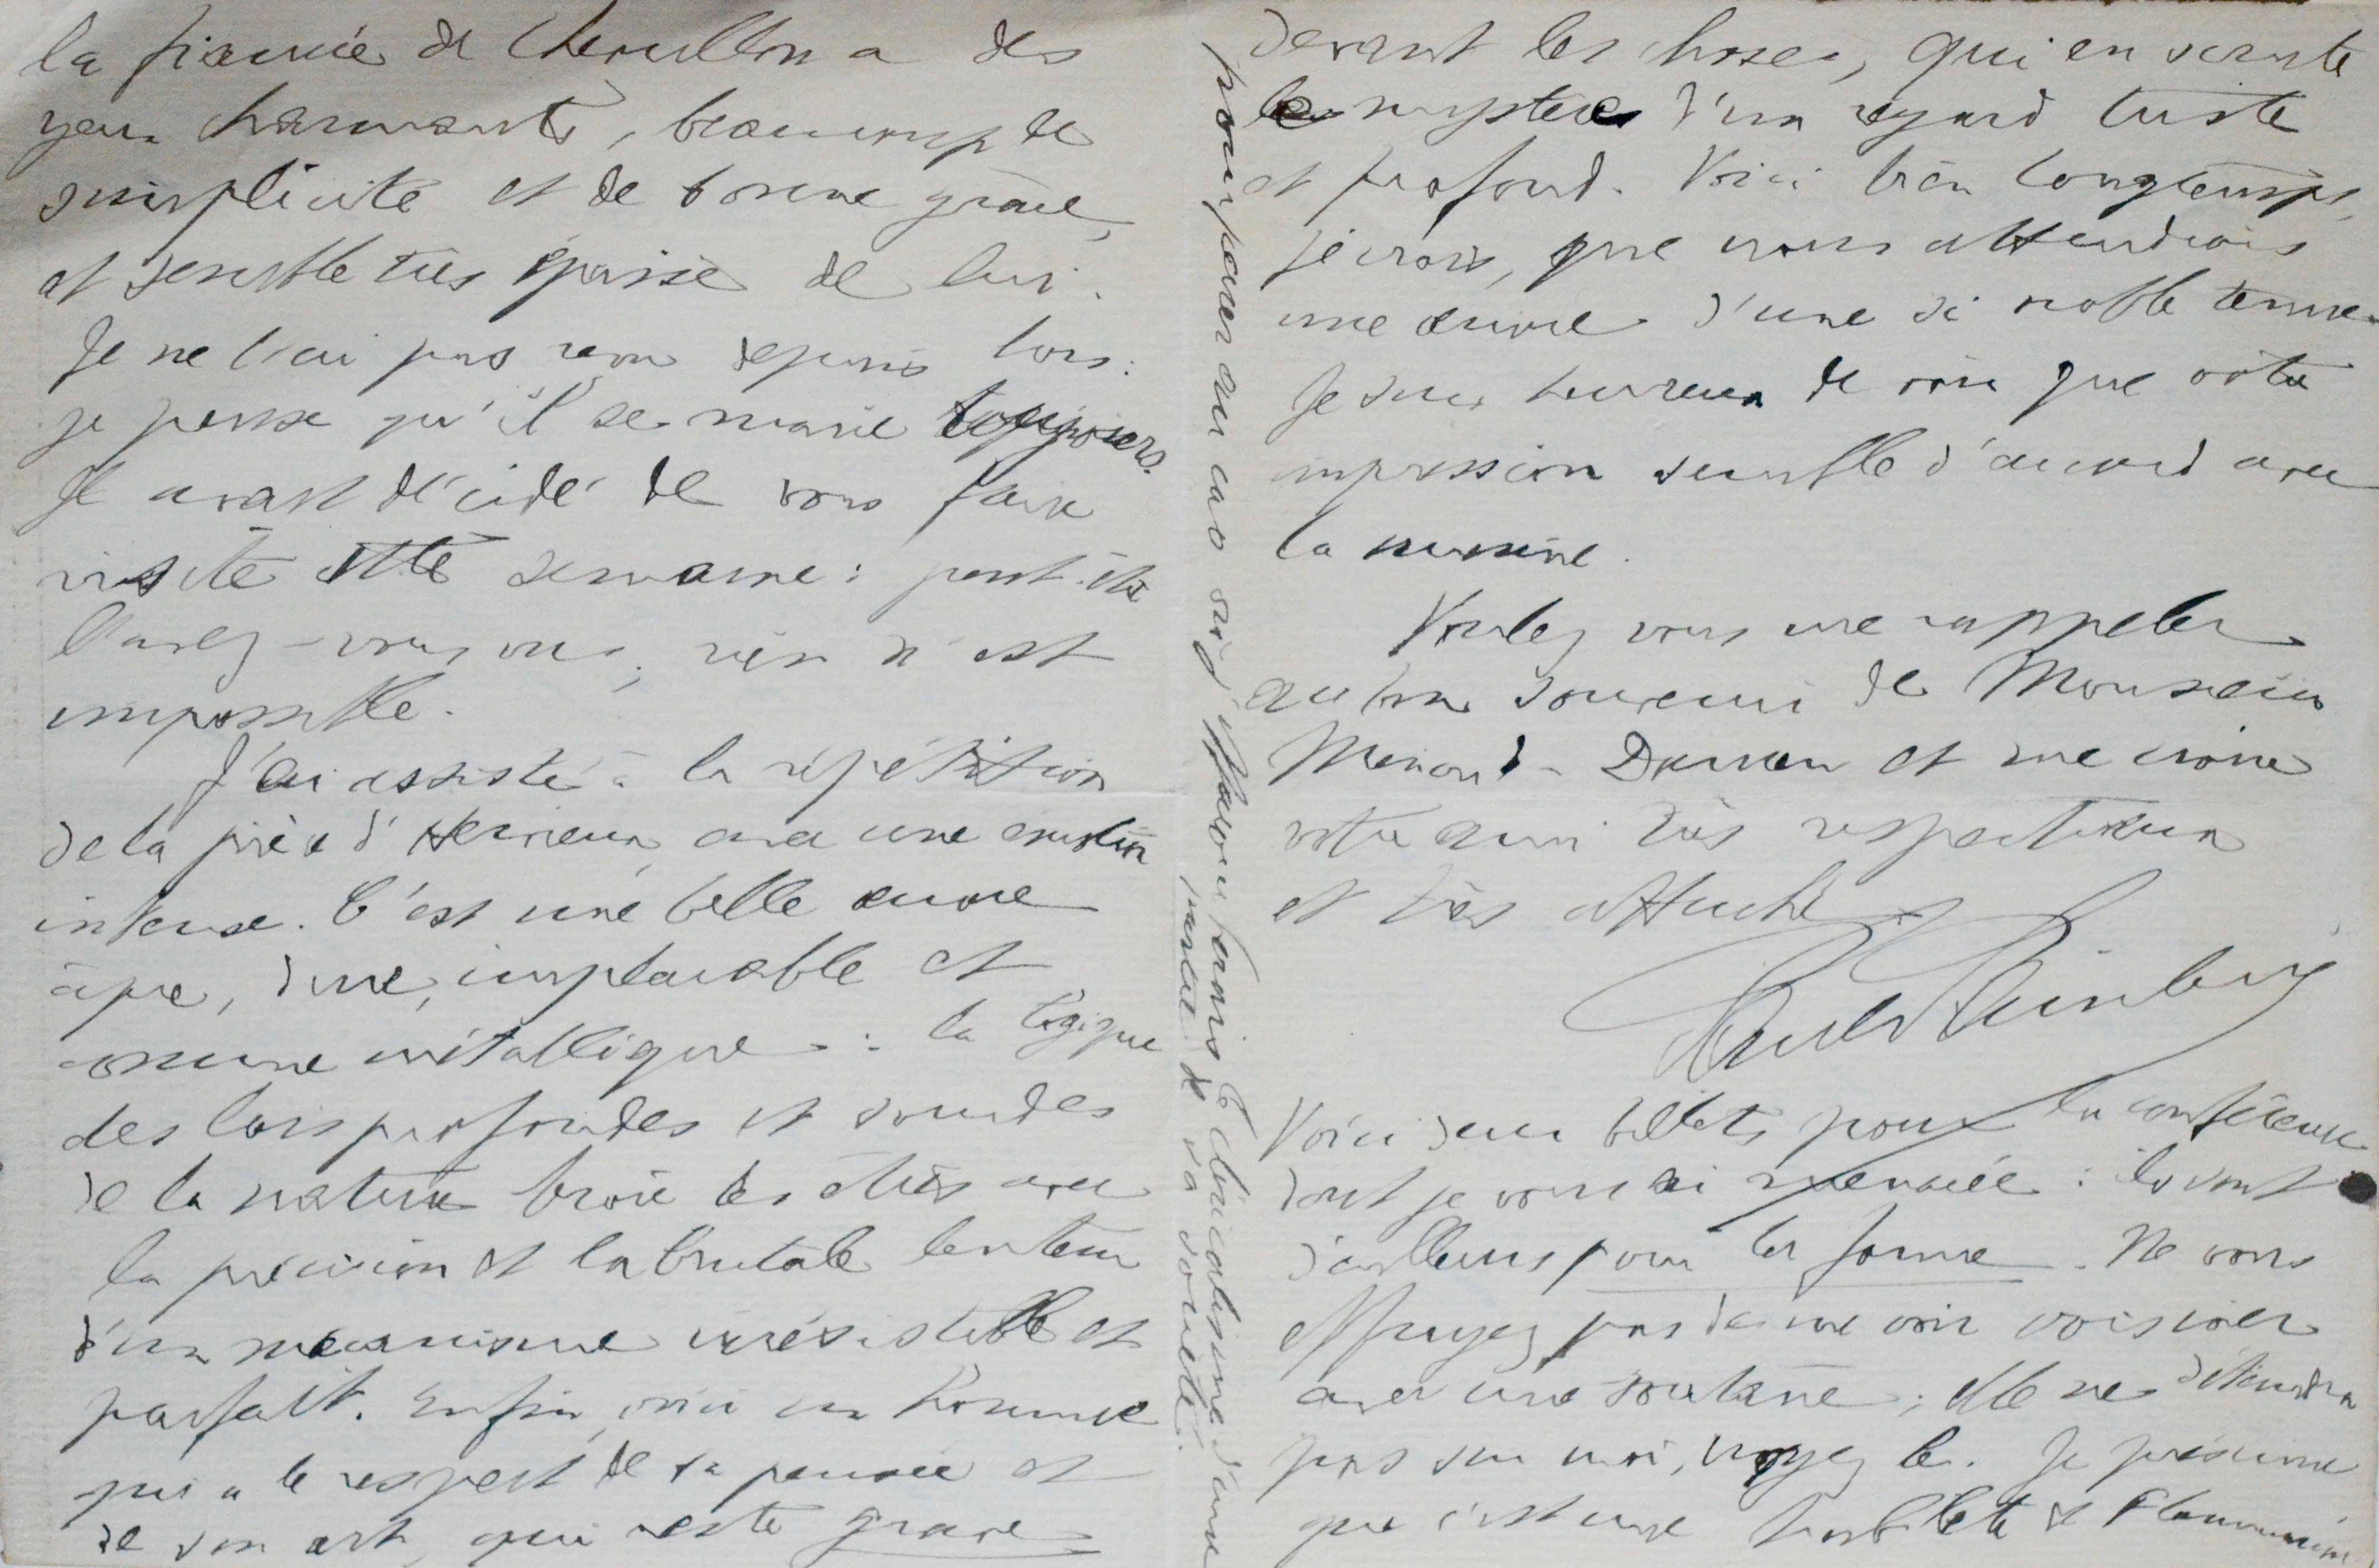 la fiancée de Chevillon a des
yeux charmants, beaucoup de
simplicité et de bonne grâce,
et semble très éprise de lui.
Je ne l'ai pas revu depuis lors:
je pense qu'il se marie toujours.
Il avait décidé de vous faire
visite cette semaine: peut-être
l'avez-vous vu; rien n'est
impossible.
J'ai assisté à la répétition
de la pièce d'Hervieu, avec une émotion
intense. C'est une belle œuvre
âpre, dure, implacable et
comme métallique: la logique
des lois profondes et sourdes
de la nature broie les êtres avec
la précision et la brutale lenteur
d'un mécanisme irrésistible et
parfait. Enfin, voici un homme
qui a le respect de sa pensée et
de son art, qui reste grave
devant les choses, qui en scrute
les mystères d'un regard triste
et profond. Voici bien longtemps,
je crois, que nous attendions
une œuvre d'une si noble tenue.
Je suis heureux de voir que votre
impression semble d'accord avec
la mienne.
Voulez vous me rappeler
au bon souvenir de Monsieur
Menard-Dorian et me croire
votre ami très respectueux
et très attaché
Voici deux billets pour la conférence
dont je vous ai menacée: ils sont
d'ailleurs pour la forme. Ne vous
effrayez pas de me voir voisiner
avec une soutane; elle ne déteindra
pas sur moi, croyez le. Je présume
que c'est une habileté de Flammarion
pour parer au cas où j'effaroucherais le cléricalisme d'une
partie de sa société.